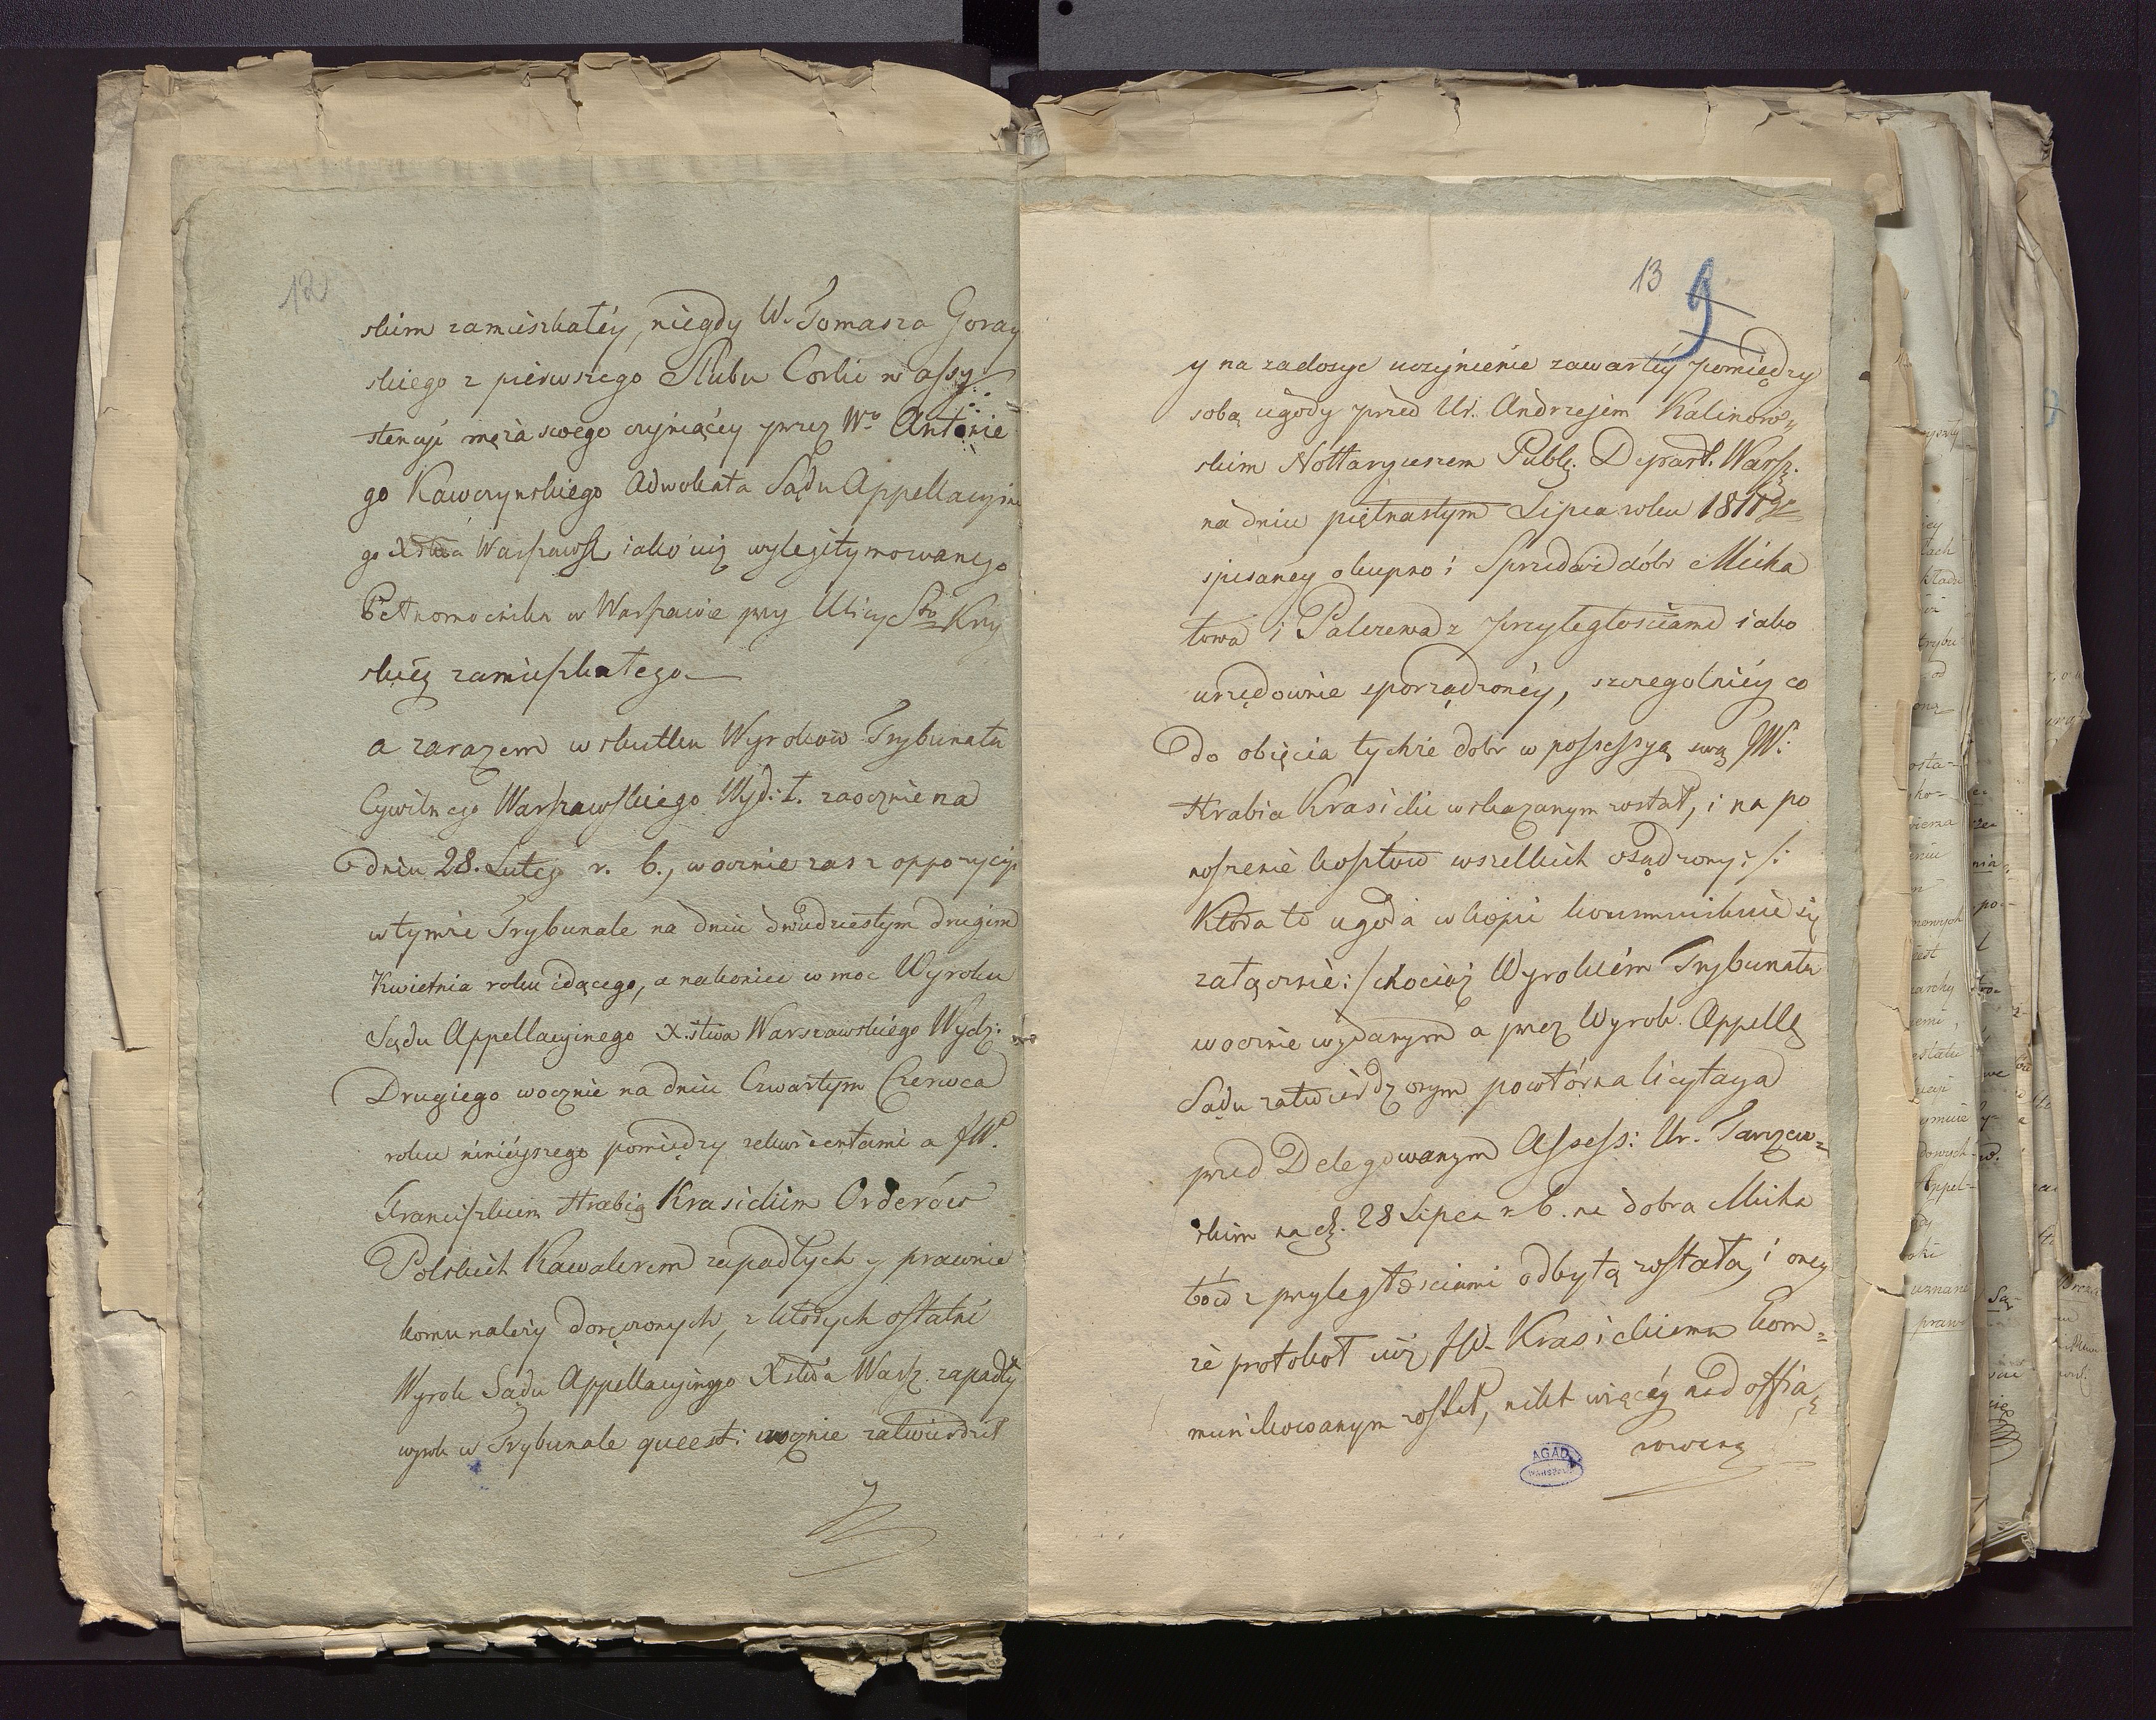 12
skim zamieszkałéy, niegdy W. Tomasza Goray
skiego z pierwszego Slubu Corki w assy:
stencyi męża swego czyniącéy przez Wo. Antonie
go Kawczynskiego Adwokata Sądu Appellacyine
go Xstwa Warszawsk. iako iuż wylegitymowanego
Pełnomocnika w Warszawie przy Ulicy Sto Krzy
skiéy zamieszkałego
a zarazem w skutku Wyroków Trybunału
Cywilnego Warszawskiego Wyd: I. zaocznie na
dniu 28. Luteg r. b., w ocznie zas z oppozycyi
w tymże Trybunale na dniu dwudziestym drugim
Kwietnia roku idącego, a nakoniec w moc Wyroku
Sądu Appellacyinego X.stwa Warszawskiego Wydz:
Drugiego wocznie na dniu Czwartym Czerwca
roku ninieyszego pomiędzy rekwirentami a JW.
Franciszkiem Hrabią Krasickim Orderów
Polskich Kawalerem zapadłych y prawnie
komu należy doręczonych, z których ostatni
Wyrok Sądu Appellacyinego Xstwa Warsz. zapadły
wyrok w Trybunale quaest: wocznie zatwierdził
13
9
y na zadosyc uczynienie zawartéy pomiędzy
sobą ugody przed Ur. Andrzejem Kalinow
skim Nottaryuszem Publ: Depart. Warsz.
na dniu piętnastym Lipca roku 1811go
spisanéy o kupno i Sprzedaż dóbr Micha
łowa i Palczewa z przyległościami iako
urzędownie sporządzonéy, szczegolniéy co
do obięcia tychże dobr w possessyą swą JW:
Hrabia Krasicki wskazanym został, i na po
noszenie kosztów wszelkich osądzony: /:
Która to ugoda w kopii kommunikuie się
załącznie: / chociaż Wyrokiem Trybunału
wocznie wydanym a przez Wyrok. Appell.
Sądu zatwierdzonym powtórna licytacya
przed Delegowanym Assess: Ur. Tarczew=
skim na d. 28 Lipca r b. na dobra Micha
łów z przyległosciami odbytą została, i oney
że protokół iuż JW. Krasickiemu kom=
munikowanym został, nikt więcéy nad offia
rowaną
AGAD
WARSZAWA